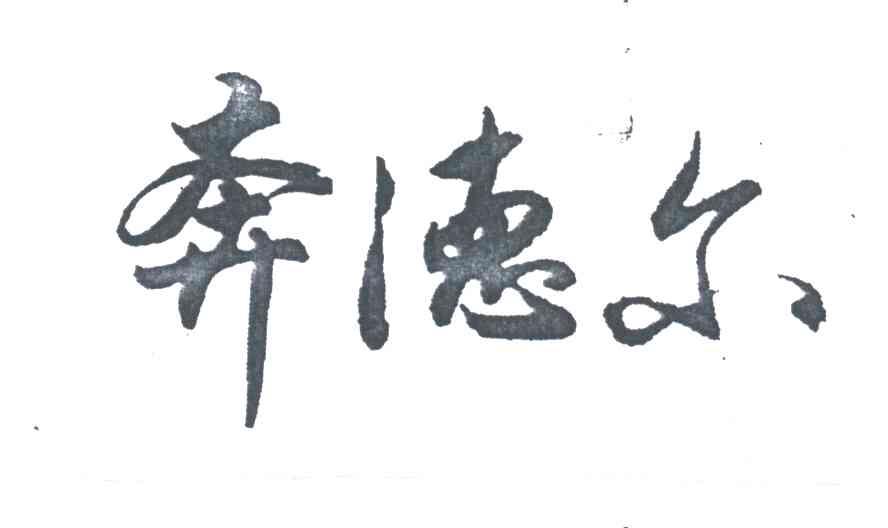 奔德尔